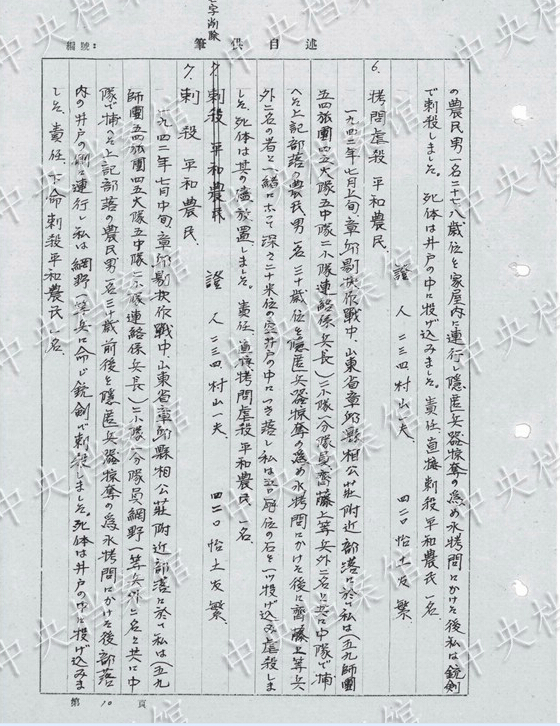 編號：
筆供自述
の農民男一名二十七八歳位を家屋内に連行し隠匿兵器掠奪の為め水拷問にかけた後私は銃剣
で刺殺しました。死体は井戸の中に投げ込みました。責任、直接刺殺平和農民一名。
證人 二三四村山一夫、 四二〇怡土友繁、
6. 拷問虐殺 平和農民、
一九四二年七月上旬、章邱剔抉作戦中、山東省章邱縣相公莊附近部落に於て私は(五九師團
五四旅團四五大隊五中隊二小隊連絡係兵長)二小隊一分隊員齋藤上等兵外二名と共に中隊で捕
へた上記部落の農民男一名三十歳位を隠匿兵器掠奪の為め水拷問にかけた後に齊藤上等兵
外二名の者と一緒になって深さ二十米位の空井戸の中につき落し私は 位の石を一ツ投げ込み虐殺しま
した。死体は其の儘放置しました。責任、直接拷問虐殺平和農民一名。
證人 二三四村山一夫、 四二〇怡土友繁、
7. 刺殺 平和農民
7. 刺殺 平和農民、
一九四二年七月中旬、章邱剔抉作戦中、山東省章邱縣相公莊附近部落に於て私は(五九
師團五四旅團四五大隊五中隊二小隊連絡係兵長)二小隊一分隊員網野一等兵外二名と共に中
隊で捕へた上記部落の農民男一名三十歳前後を隠匿兵器掠奪の為水拷問にかけた後部落
内の井戸の側に連行し私は網野一等兵に命じ銃剣で刺殺しました。死体は井戸の中に投げ込みま
した。責任、下命刺殺平和農民一名、
字削除
第 10 頁
中央档案馆